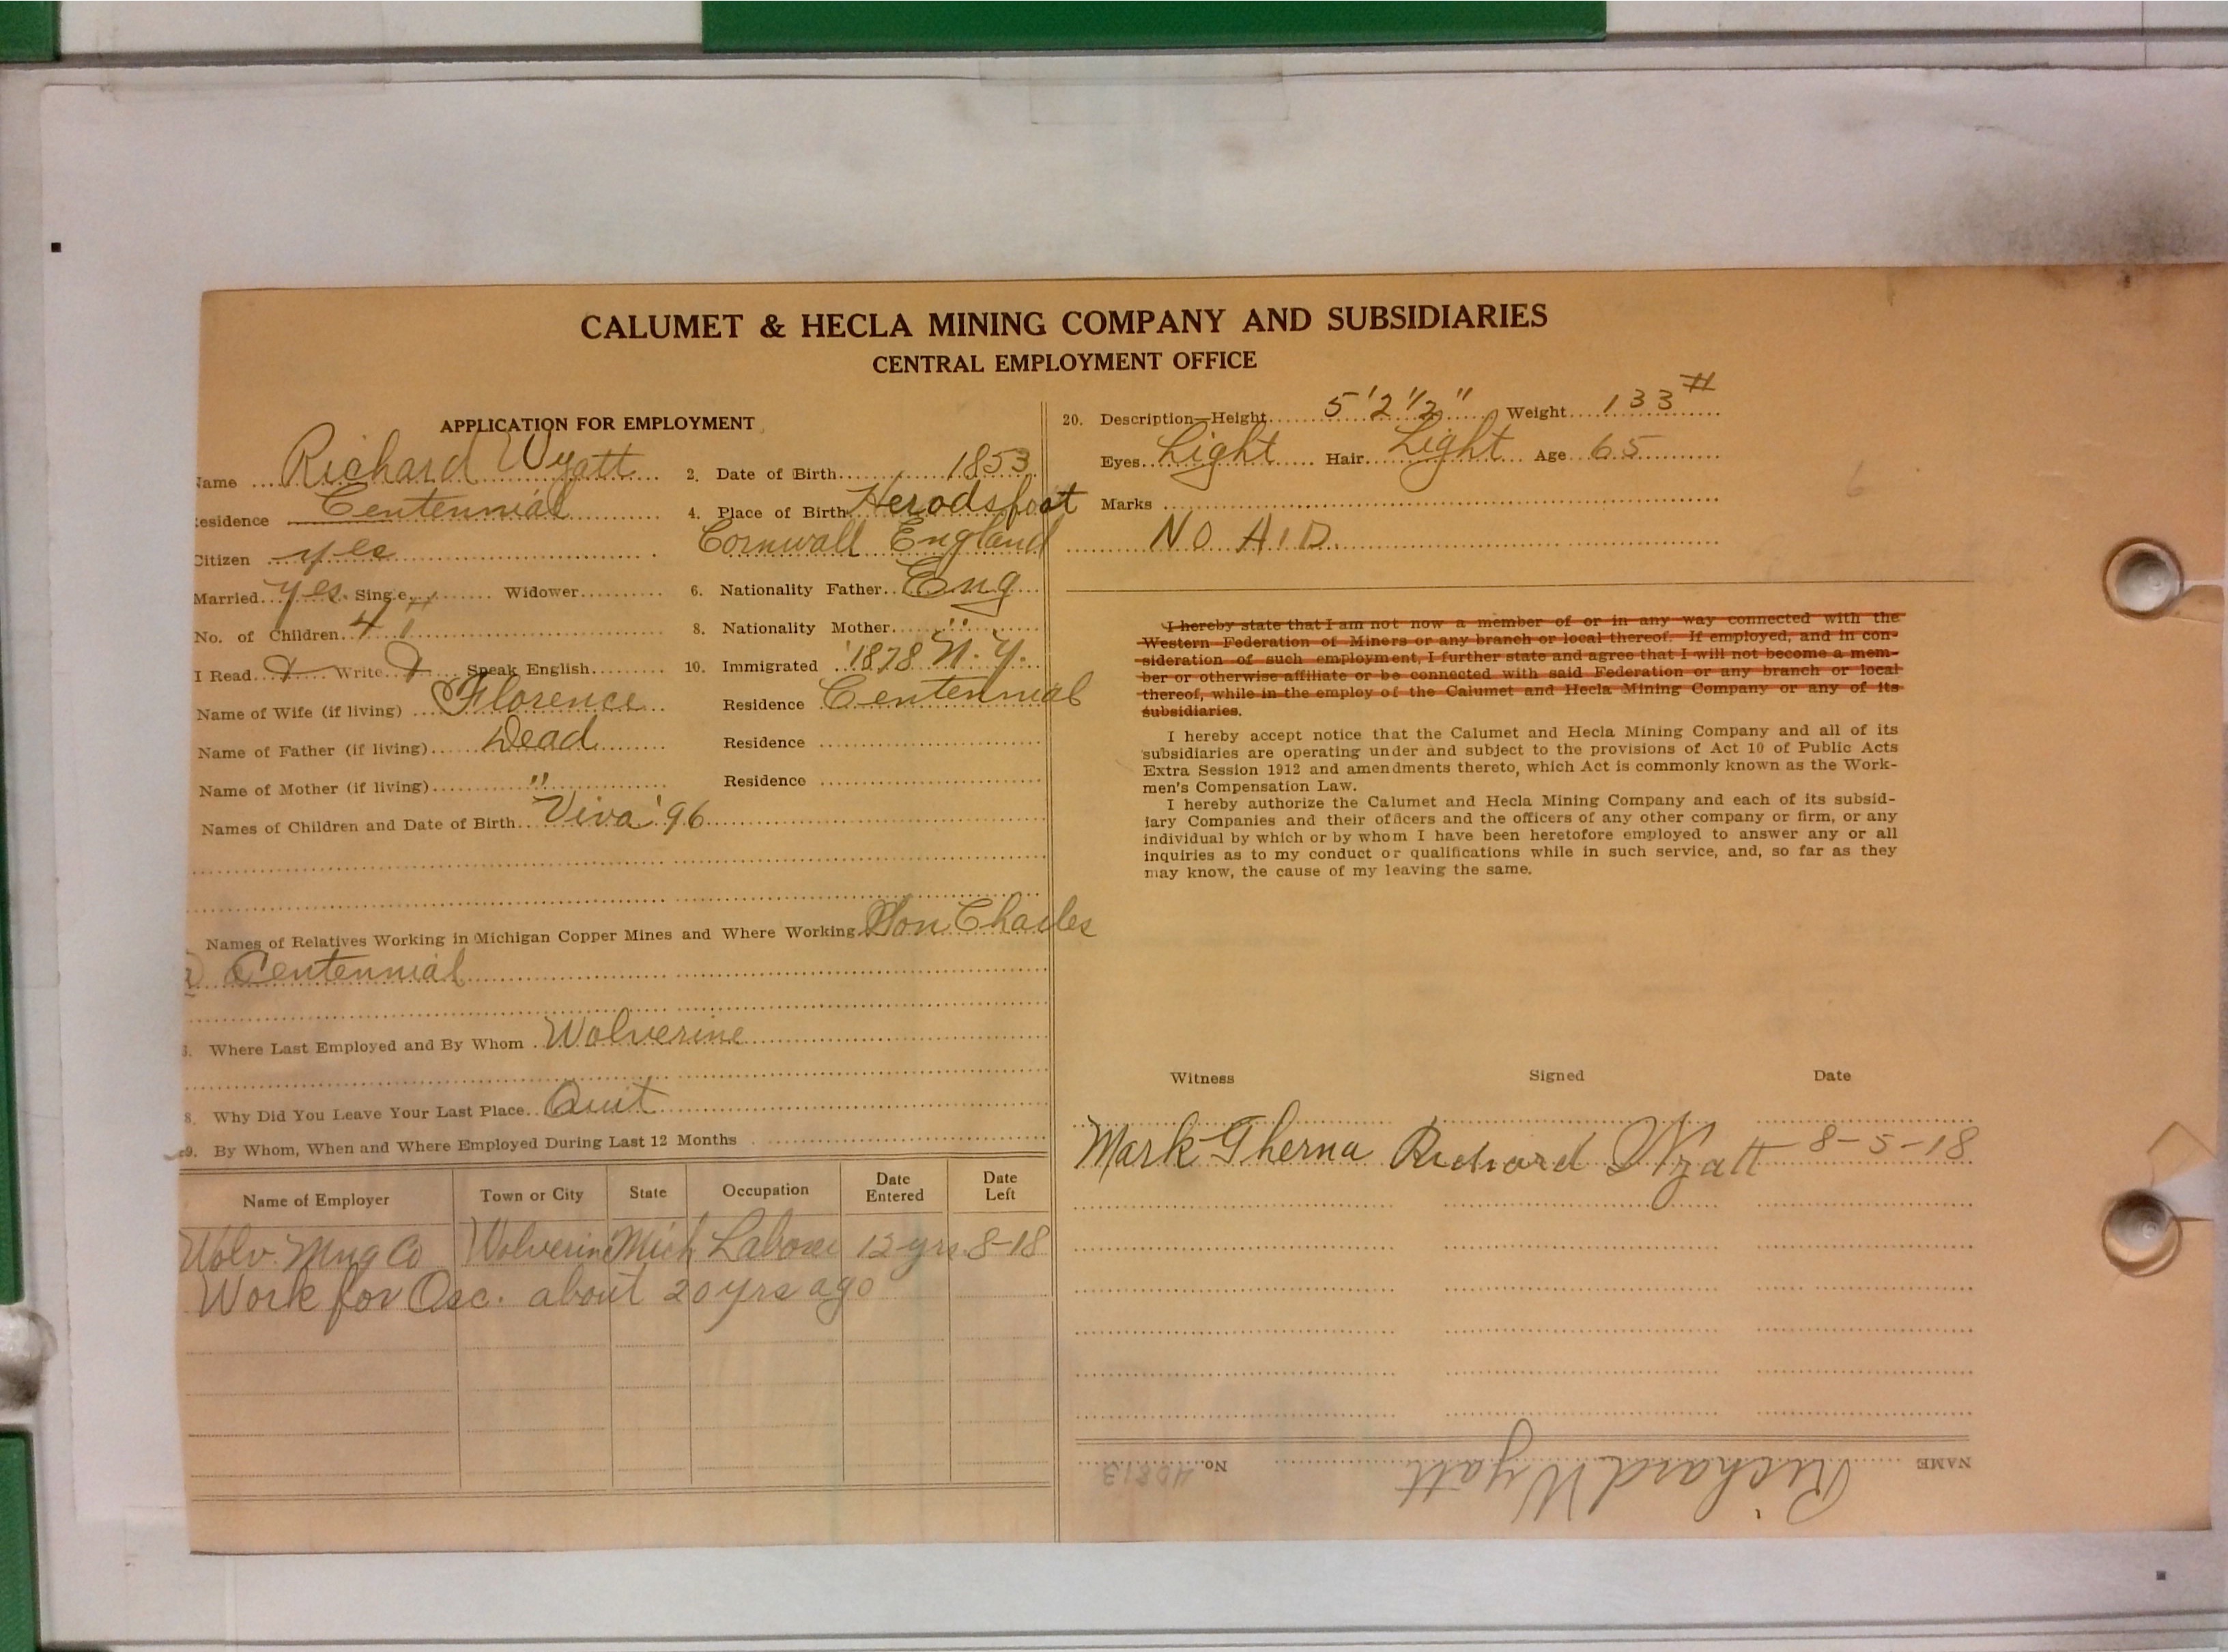 CALUMET & HECLA MINING COMPANY AND SUBSIDIARIES
CENTRAL EMPLOYMENT OFFICE
APPLICATION FOR EMPLOYMENT
Name Richard Wyatt 2. Date of Birth 1853
Residence Centennial 4. Place of Birth Herodsfoot
Citizen yes Cornwall England
Married yes Single Widower 6. Nationality Father Eng
No. of Children 4 8. Nationality Mother "
I Read Write Speak English 10. Immigrated '1878 N.Y.
Name of Wife (if living) Florence Residence Centennial
Name of Father (if living) Dead Residence
Name of Mother (if living) " Residence
Names of Children and Date of Birth Viva '96
Names of Relatives Working in Michigan Copper Mines and Where Working Son Charles
Centennial
Where Last Employed and By Whom Wolverine
8. Why Did You Leave Your Last Place Quit
9. By Whom, When and Where Employed During Last 12 Months
Name of Employer Town or City State Occupation Date Entered Date Left
Wolv. Mng Co Wolverine Mich Labore 12 yrs 8-18
Work for Osc. about 20 yrs ago
20. Description—Height 5'2 1/2" Weight 133#
Eyes Light Hair Light Age 65
Marks
NO A.I.D.
I hereby state that I am not now a member of or in any way connected with the
Western Federation of Miners or any branch or local thereof. If employed, and in con-
sideration of such employment, I further state and agree that I will not become a mem-
ber or otherwise affiliate or be connected with said Federation or any branch or local
thereof, while in the employ of the Calumet and Hecla Mining Company or any of its
subsidiaries.
I hereby accept notice that the Calumet and Hecla Mining Company and all of its
subsidiaries are operating under and subject to the provisions of Act 10 of Public Acts
Extra Session 1912 and amendments thereto, which Act is commonly known as the Work-
men's Compensation Law.
I hereby authorize the Calumet and Hecla Mining Company and each of its subsid-
iary Companies and their officers and the officers of any other company or firm, or any
individual by which or by whom I have been heretofore employed to answer any or all
inquiries as to my conduct or qualifications while in such service, and, so far as they
may know, the cause of my leaving the same.
Witness Signed Date
Mark Gherna Richard Wyatt 8-5-18
NAME Richard Wyatt No. 40813